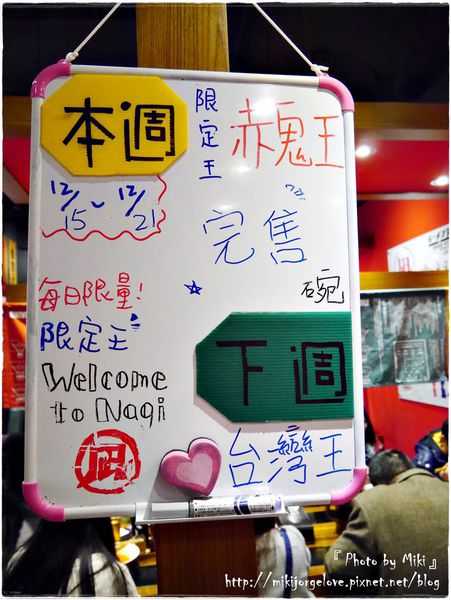 本週
12/15~12/21
限定王
赤鬼王
完售
碗
每日限量!
限定王
Welcome
to Nagi
凪
下週
台灣王
『Photo by Miki』
http://mikijorgelove.pixnet.net/blog